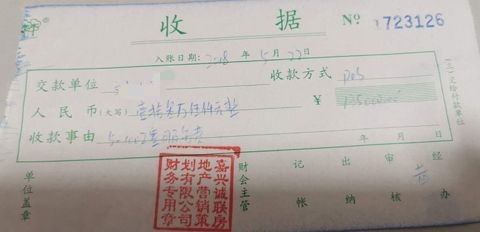 收 据 № 1723126
入账日期: 2018 年 5 月 22日
交款单位 收款方式 POS
人 民 币(大写) 壹拾叁万伍仟元整 ¥
收款事由
年 月 日
单位盖章 财会主管 记帐 出纳 审核 经办
嘉兴诚联房
地产营销策
划有限公司
财务专用章
交给付款单位